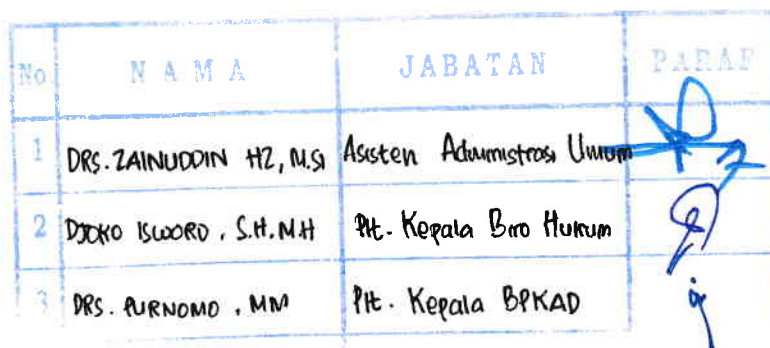 No. N A M A JABATAN PARAF
1 DRS. ZAINUDDIN HZ, M.Si Asisten Administrasi Umum
2 DJOKO ISWORO, S.H.MH Plt. Kepala Biro Hukum
3 DRS. PURNOMO, MM Plt. Kepala BPKAD